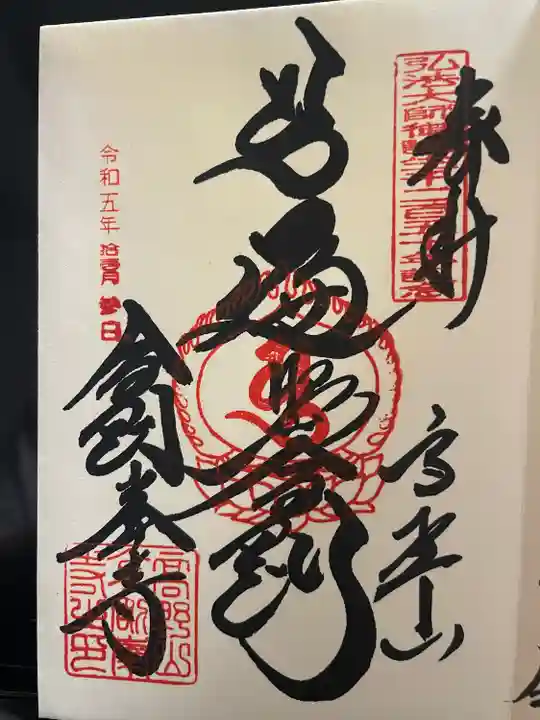 奉拝
弘法大師御誕生千二百五十年記念
高野山
遍照金剛
令和五年 拾壱月 参日
金剛峯寺